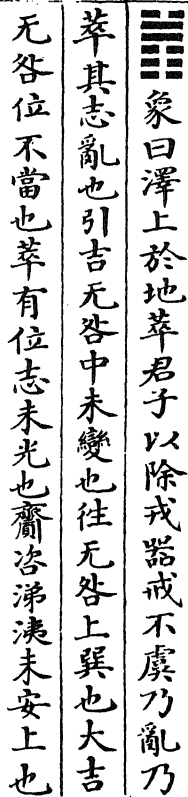 ䷬象曰澤上於地萃君子以除戎器戒不虞乃亂乃
萃其志亂也引吉无咎中未變也往无咎上巽也大吉
无咎位不當也萃有位志未光也齎咨涕洟未安上也